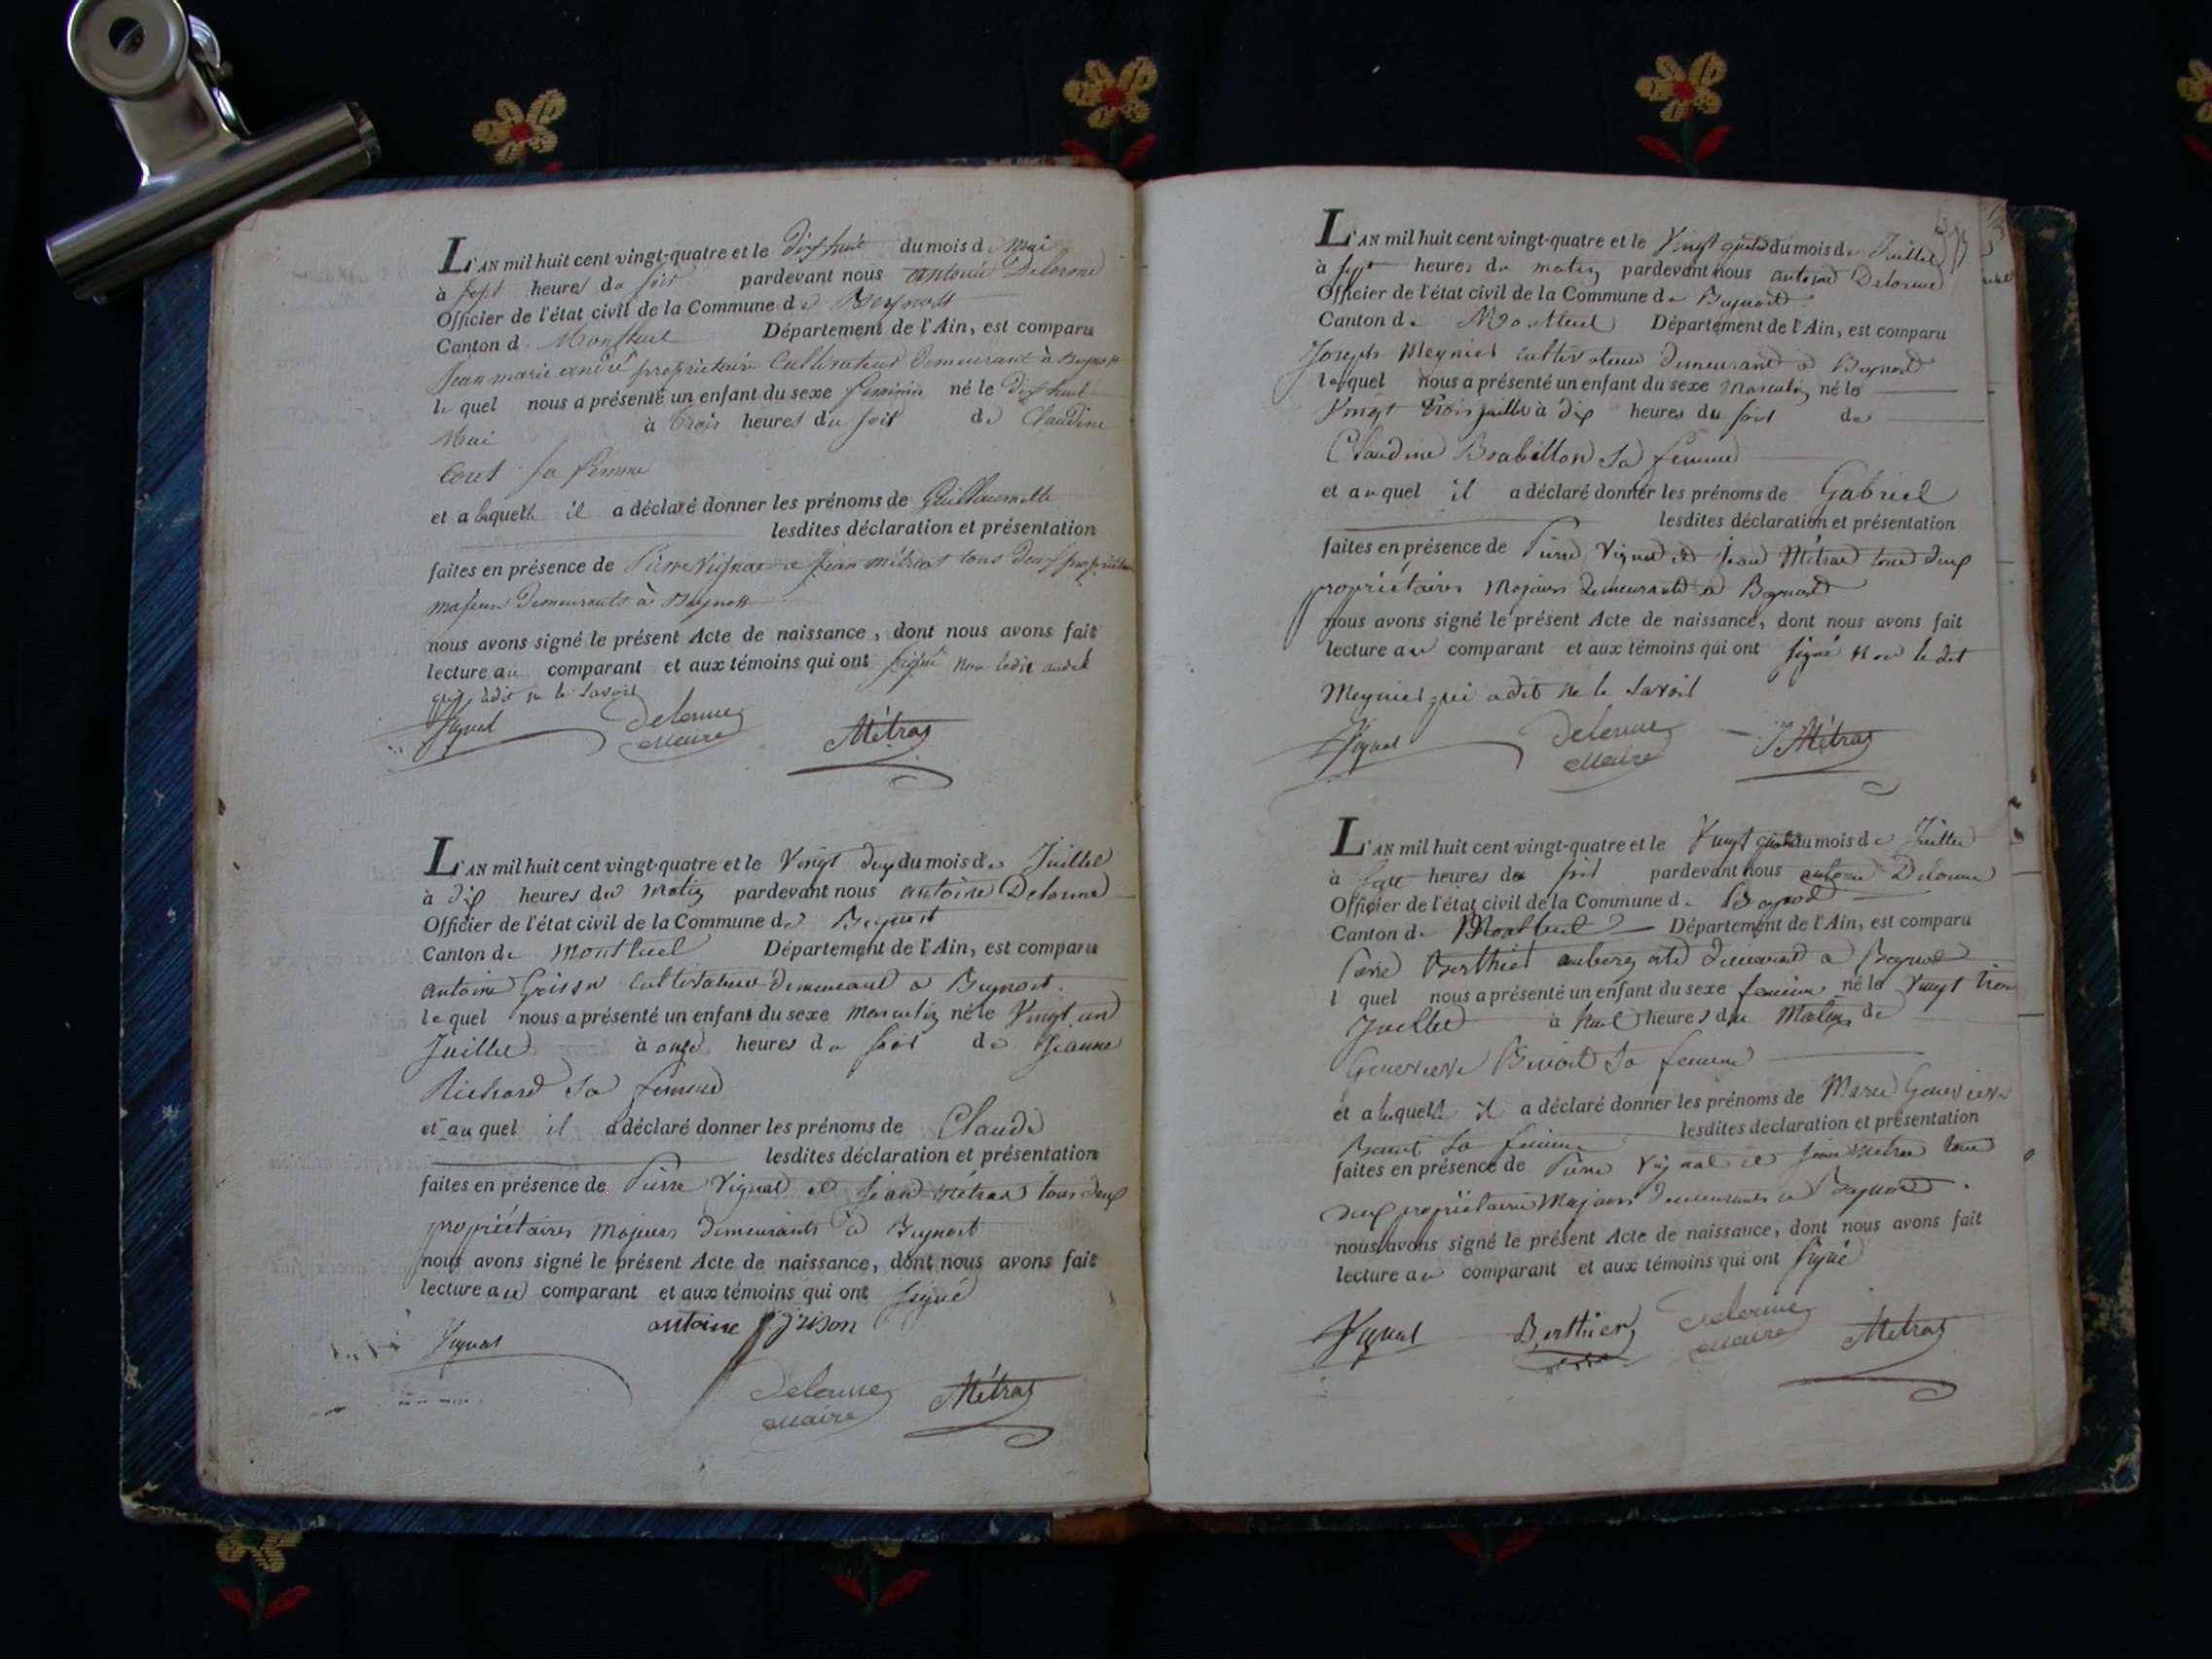 L'AN mil huit cent vingt-quatre et le dix huit du mois de Mai
à sept heures du soir pardevant nous antoine Delorme
Officier de l'état civil de la Commune de Beynost
Canton d. Montluel Département de l'Ain, est comparu
Jean marie andré propriétaire Cultivateur demeurant à Beynost
le quel nous a présenté un enfant du sexe feminin né le dix huit
Mai à trois heures du soir de Claudine
sa femme
et a laquelle il a déclaré donner les prénoms de Guillaumette
lesdites déclaration et présentation
faites en présence de Pierre Vignal et Jean métras tous deux propriétaires
majeurs demeurants à Beynost
nous avons signé le présent Acte de naissance, dont nous avons fait
lecture au comparant et aux témoins qui ont signé non ledit andré
qui a dit ne le savoir
Vignal Delorme Maire Métras
L'AN mil huit cent vingt-quatre et le Vingt deux du mois de Juillet
à dix heures du matin pardevant nous antoine Delorme
Officier de l'état civil de la Commune de Beynost
Canton de Montluel Département de l'Ain, est comparu
antoine Grison Cultivateur demeurant a Beynost
lequel nous a présenté un enfant du sexe masculin né le Vingt un
Juillet à onze heures du soir de Jeanne
Richard Sa femme
et au quel il a déclaré donner les prénoms de Claude
lesdites déclaration et présentation
faites en présence de Pierre Vignal et Jean métras tous deux
propriétaires Majeurs demeurants a Beynost
nous avons signé le présent Acte de naissance, dont nous avons fait
lecture au comparant et aux témoins qui ont signé
Vignal antoine grison
Delorme Maire Métras
L'AN mil huit cent vingt-quatre et le Vingt quatre du mois de Juillet
à sept heures du matin pardevant nous antoine Delorme
Officier de l'état civil de la Commune de Beynost
Canton de Montluel Département de l'Ain, est comparu
Joseph Meynier cultivateur demeurant a Beynost
lequel nous a présenté un enfant du sexe Masculin né le
Vingt trois juillet à dix heures du soir de
Claudine Brabillon Sa femme
et auquel il a déclaré donner les prénoms de Gabriel
lesdites déclaration et présentation
faites en présence de Pierre Vignal et Jean Métras tous deux
propriétaires Majeurs demeurants a Beynost
nous avons signé le présent Acte de naissance, dont nous avons fait
lecture au comparant et aux témoins qui ont signé non le dit
Meynier qui a dit ne le Savoir
Vignal Delorme Maire J Métras
L'AN mil huit cent vingt-quatre et le Vingt quatre du mois de Juillet
à sept heures du soir pardevant nous antoine Delorme
Officier de l'état civil de la Commune d. Beynost
Canton de Montluel Département de l'Ain, est comparu
Berthier aubergiste demeurant a Beynost
l quel nous a présenté un enfant du sexe feminin né le Vingt trois
Juillet à huit heures du Matin de
Genevieve Benoit Sa femme
et a laquelle il a déclaré donner les prénoms de Marie Genevieve
lesdites déclaration et présentation
Benoit Sa femme
faites en présence de Pierre Vignal et Jean Metras tous
deux propriétaires Majeurs demeurants a Beynost.
nous avons signé le présent Acte de naissance, dont nous avons fait
lecture au comparant et aux témoins qui ont signé
Vignal Berthier Delorme Maire Métras